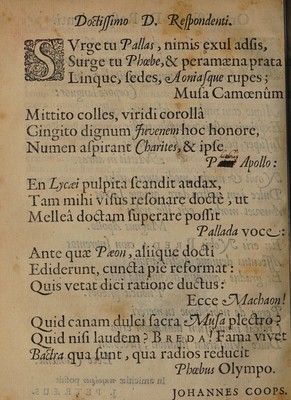 Doctissimo D. Respondenti.
SUrge tu Pallas, nimis exul adsis,
Surge tu Phœbe, & peramæna prata
Linque, sedes, Aoniasque rupes;
Musa Camœnûm
Mittito colles, viridi corollâ
Cingito dignum Juvenem hoc honore,
Numen aspirant Charites, & ipse
Apollo:
En Lycæi pulpita scandit audax,
Tam mihi visus resonare doctè, ut
Melleâ doctam superare possit
Pallada voce:
Ante quæ Pæon, aliique docti
Ediderunt, cuncta piè reformat:
Quis vetat dici ratione ductus:
Ecce Machaon!
Quid canam dulci sacra Musa plectro?
Quid nisi laudem? BREDA! Fama vivet
Bactra qua sunt, qua radios reducit
Phœbus Olympo.
JOHANNES COOPS.